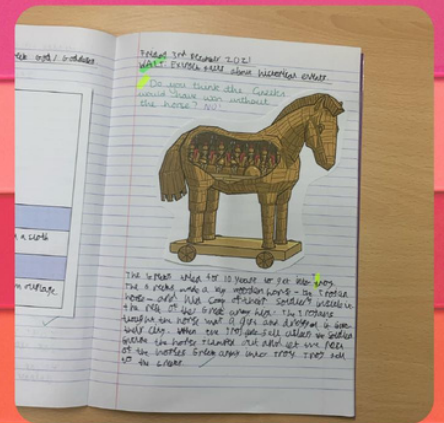 Friday 3rd December 2021
WALT: Explain facts about historical events
Do you think the Greeks
would have won without
the horse? NO!
Gods/Goddesses
in a cloth
The Greeks tried for 10 years to get into Troy.
The Greeks made a big wooden horse - the Trojan
horse - and hid some of their soldiers inside
the rest of the Greek army hid. The Trojans
thought the horse was a gift and dragged it
their city. When the Trojans fell asleep the soldiers
inside the horse climbed out and let the rest
of the Greek army into Troy. Troy fell
to the Greeks.